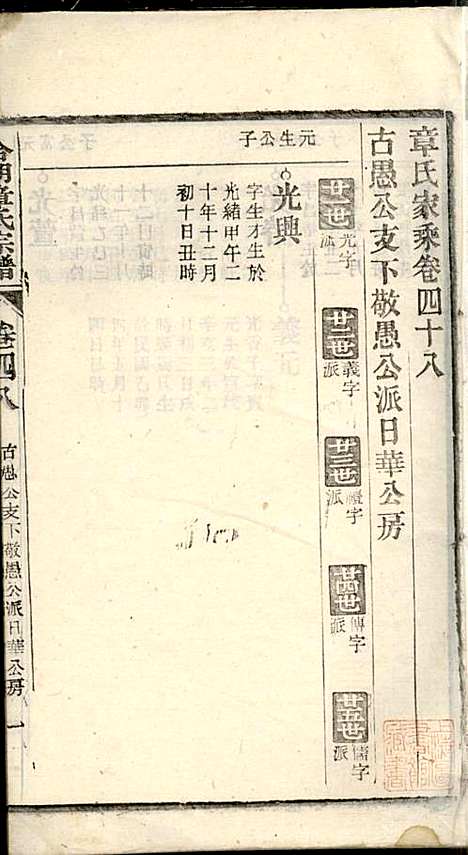 章氏家乘卷四十八
古愚公支下敬愚公派日華公房
廿一世 光字派
廿二世 義字派
廿三世 禮字派
廿四世 傳字派
廿五世 儒字派
元生公子
光興
字生才生於
光緒甲午二
十年十二月
初十日丑時
章氏宗譜
卷四八
古愚公支下敬愚公派日華公房
一